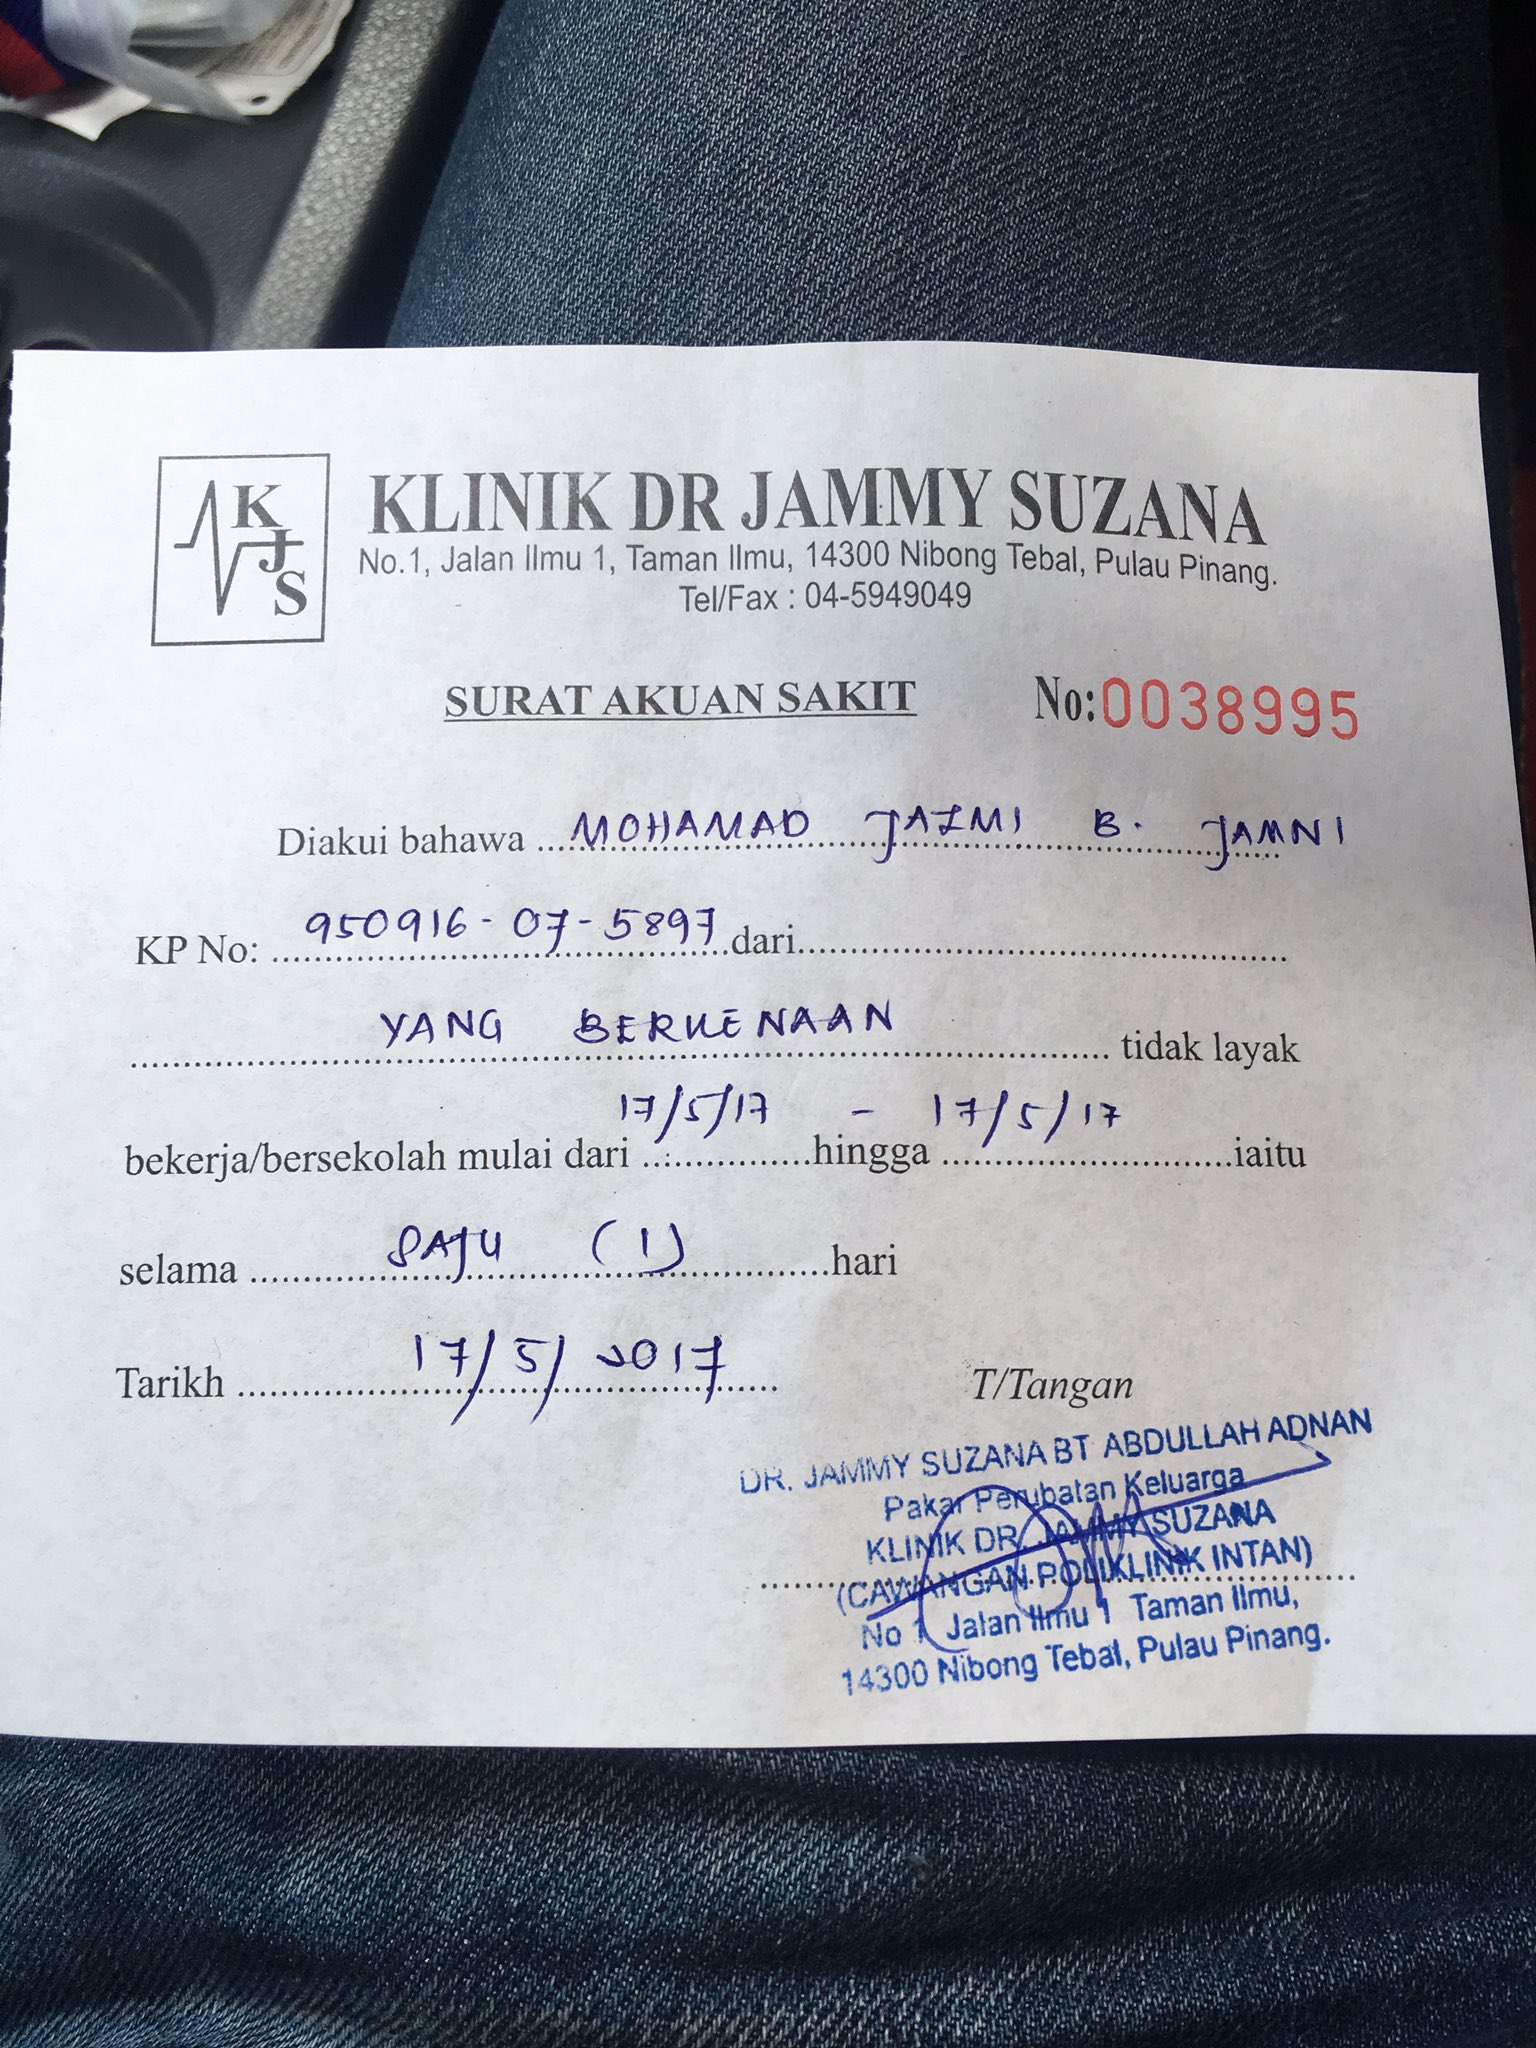 KJS
KLINIK DR JAMMY SUZANA
No.1, Jalan Ilmu 1, Taman Ilmu, 14300 Nibong Tebal, Pulau Pinang.
Tel/Fax : 04-5949049
SURAT AKUAN SAKIT No:0038995
Diakui bahawa MOHAMAD JAZMI B. JAMNI
KP No: 950916-07-5897 dari
YANG BERKENAAN tidak layak
bekerja/bersekolah mulai dari 17/5/17 - hingga 17/5/17 iaitu
selama SATU (1) hari
Tarikh 17/5/2017 T/Tangan
DR. JAMMY SUZANA BT ABDULLAH ADNAN
Pakar Perubatan Keluarga
KLINIK DR. JAMMY SUZANA
(CAWANGAN POLIKLINIK INTAN)
No 1 Jalan Ilmu 1 Taman Ilmu,
14300 Nibong Tebal, Pulau Pinang.